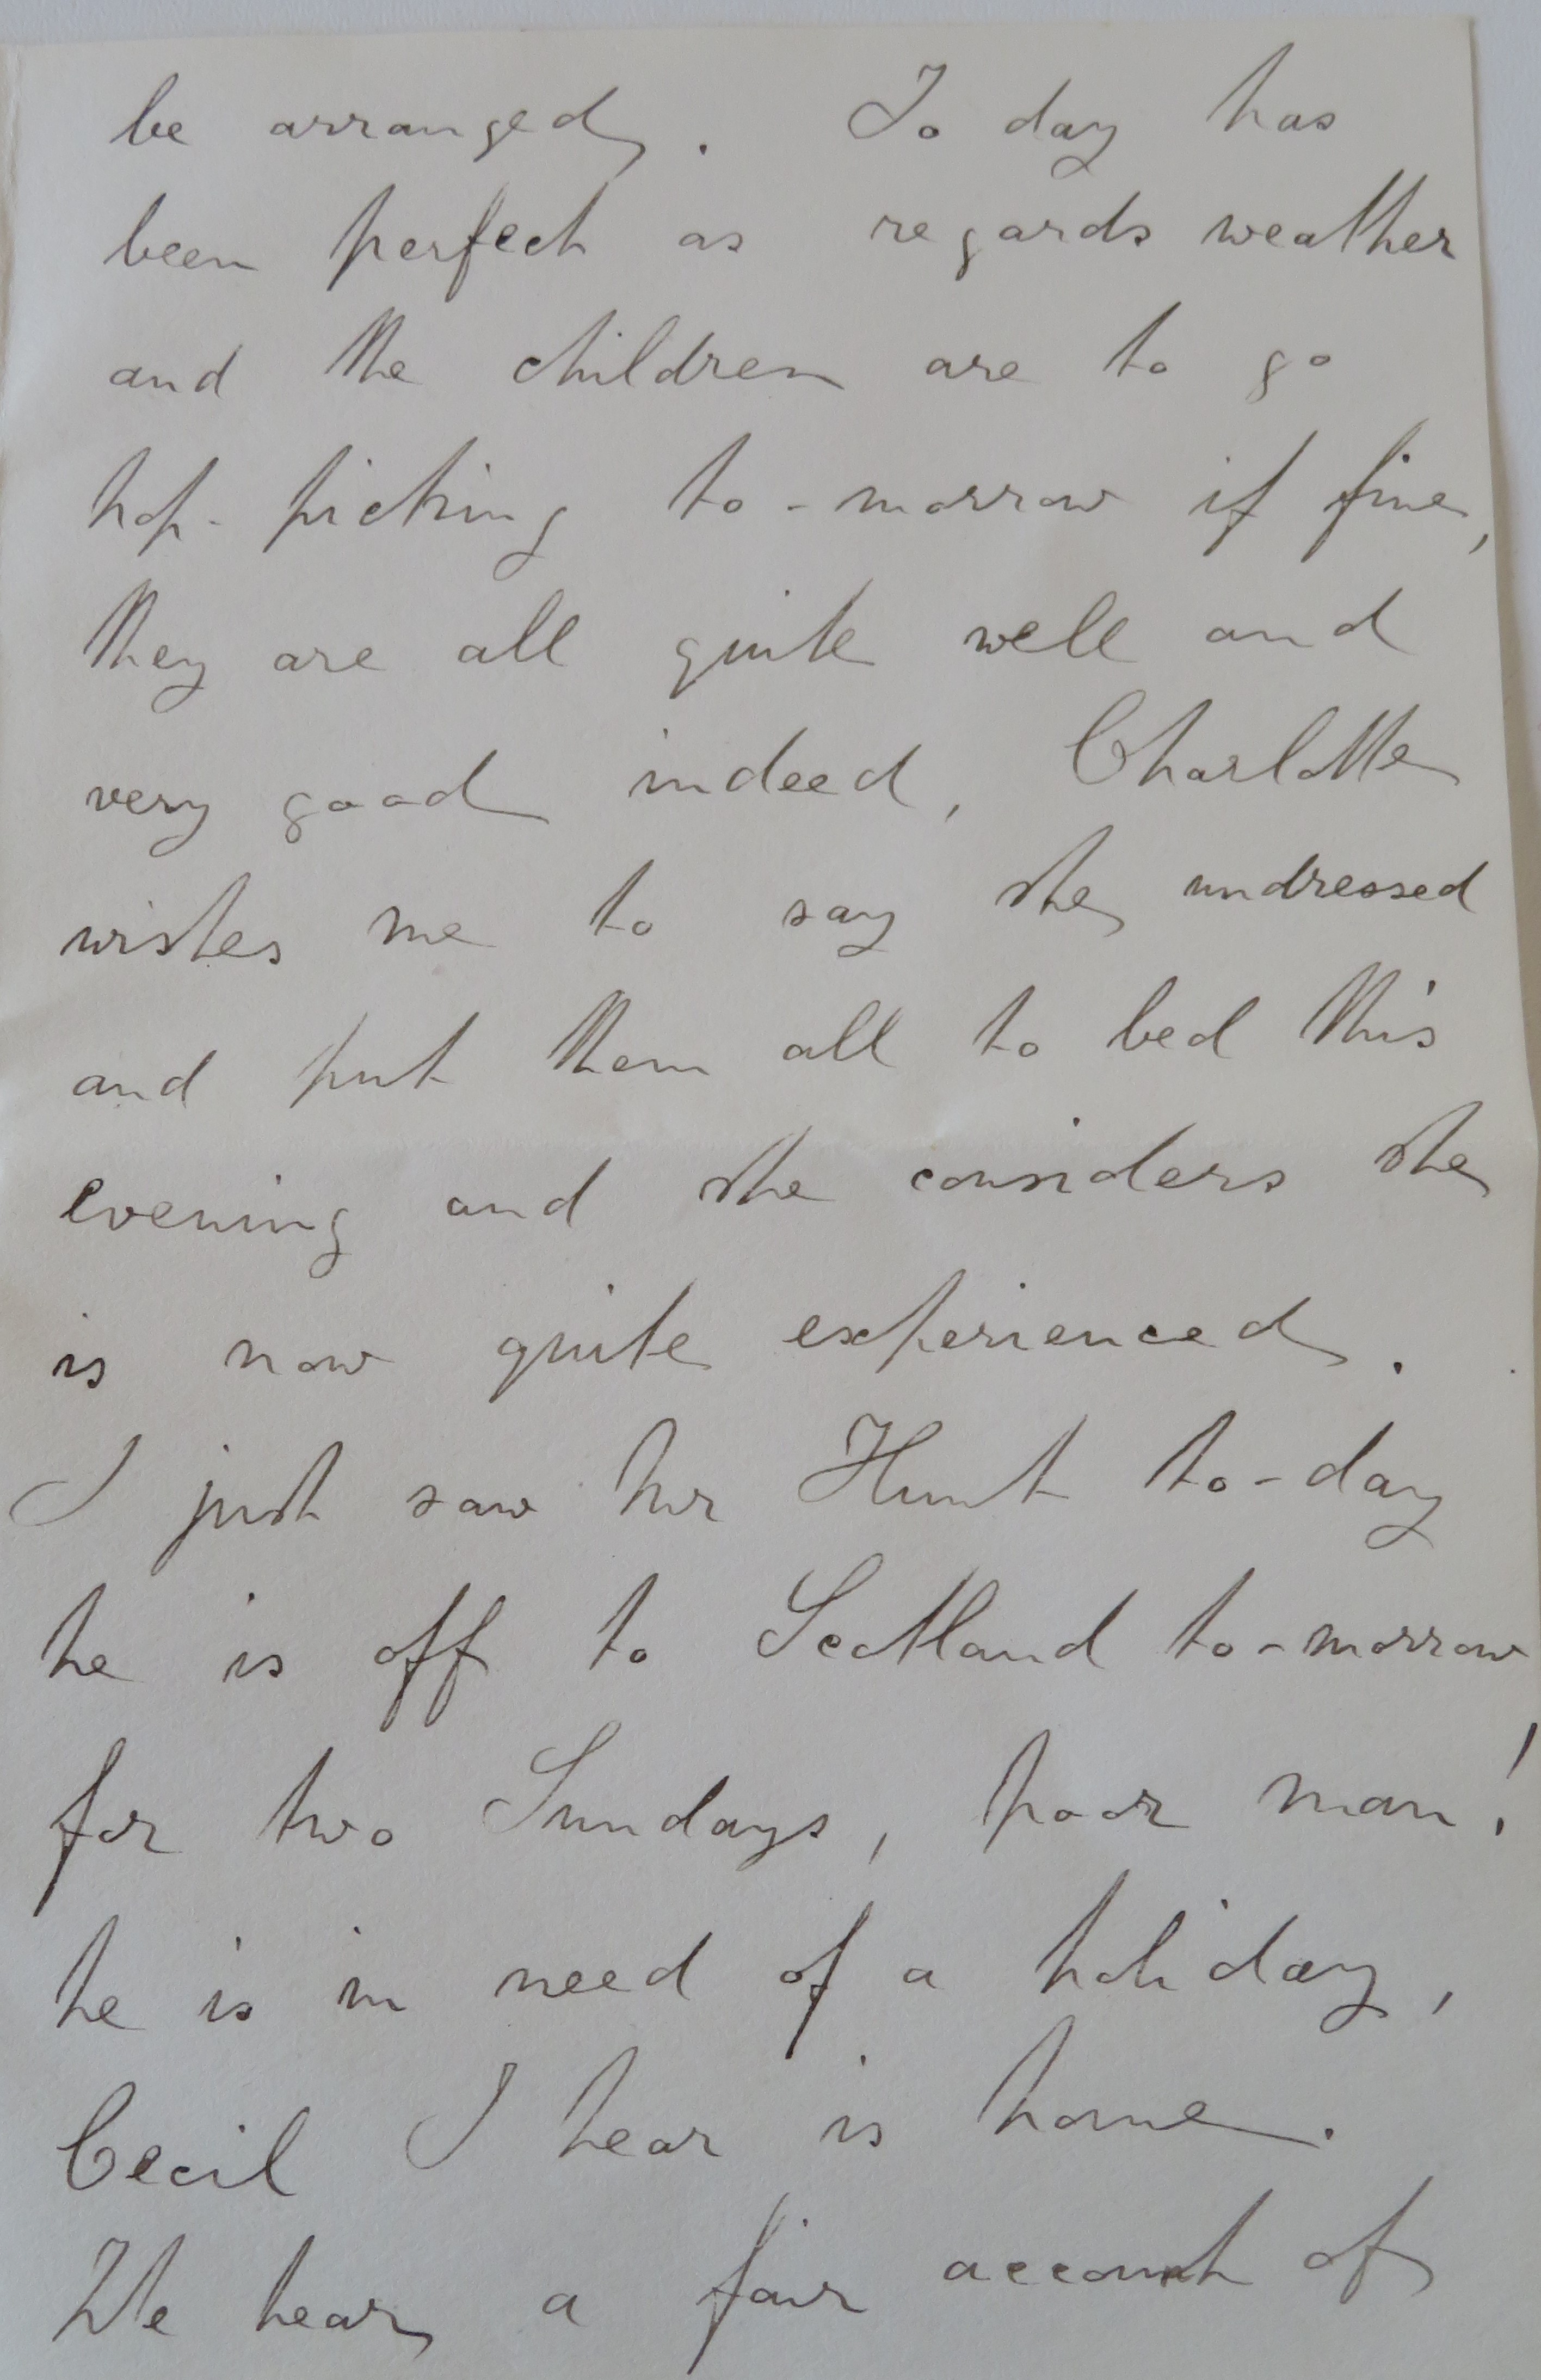 be arranged. To day has
been perfect as regards weather
and the children are to go
hop-picking to-morrow if fine,
they are all quite well and
very good indeed, Charlotte
wishes me to say she undressed
and put them all to bed this
evening and she considers she
is now quite experienced.
I just saw Mr Hunt to-day
he is off to Scotland to-morrow
for two Sundays, poor man!
he is in need of a holiday,
Cecil I hear is home.
We hear a fair account of